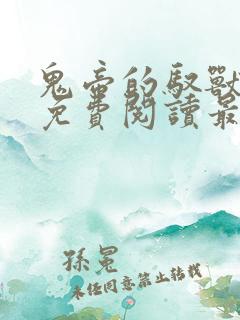 鬼帝的馭獸
免費閱讀最
孫冕
未经同意禁止转载